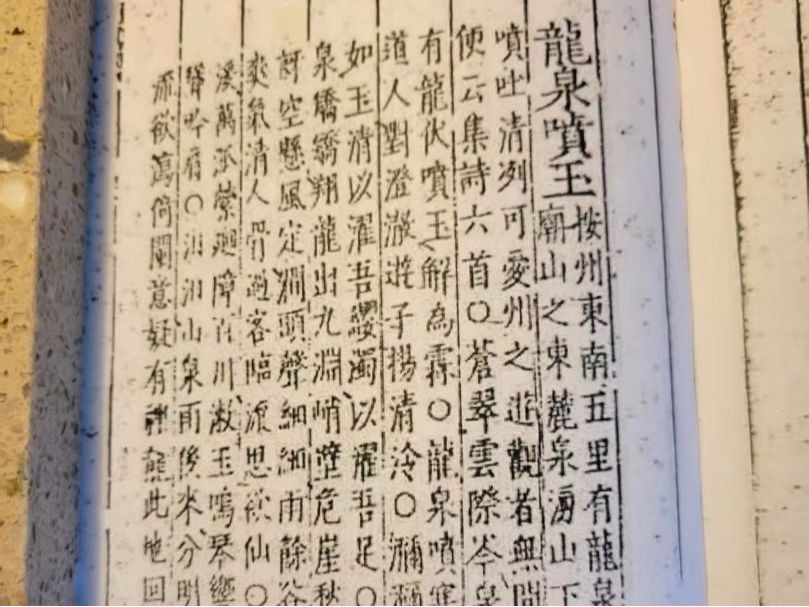 龍泉噴玉
按州東南五里有龍泉
廟山之東麓泉湧山下
噴吐清冽可愛州之遊觀者無間
便云集詩六首○蒼翠雲際岑泉
有龍伏噴玉解為霖○龍泉噴寒
道人對澄澈遊子揚清泠○瀰瀰
如玉清以濯吾纓濁以濯吾足○
泉驕翔龍出九淵峭壁危崖秋
空懸風定澗頭聲細細雨餘谷
爽氣清人骨過客臨流思欲仙○
溪萬派縈迴障百川漱玉鳴琴響
聲吟肩○汨汨山泉雨後來分明
流欲瀉倚闌意疑有神龍此地回